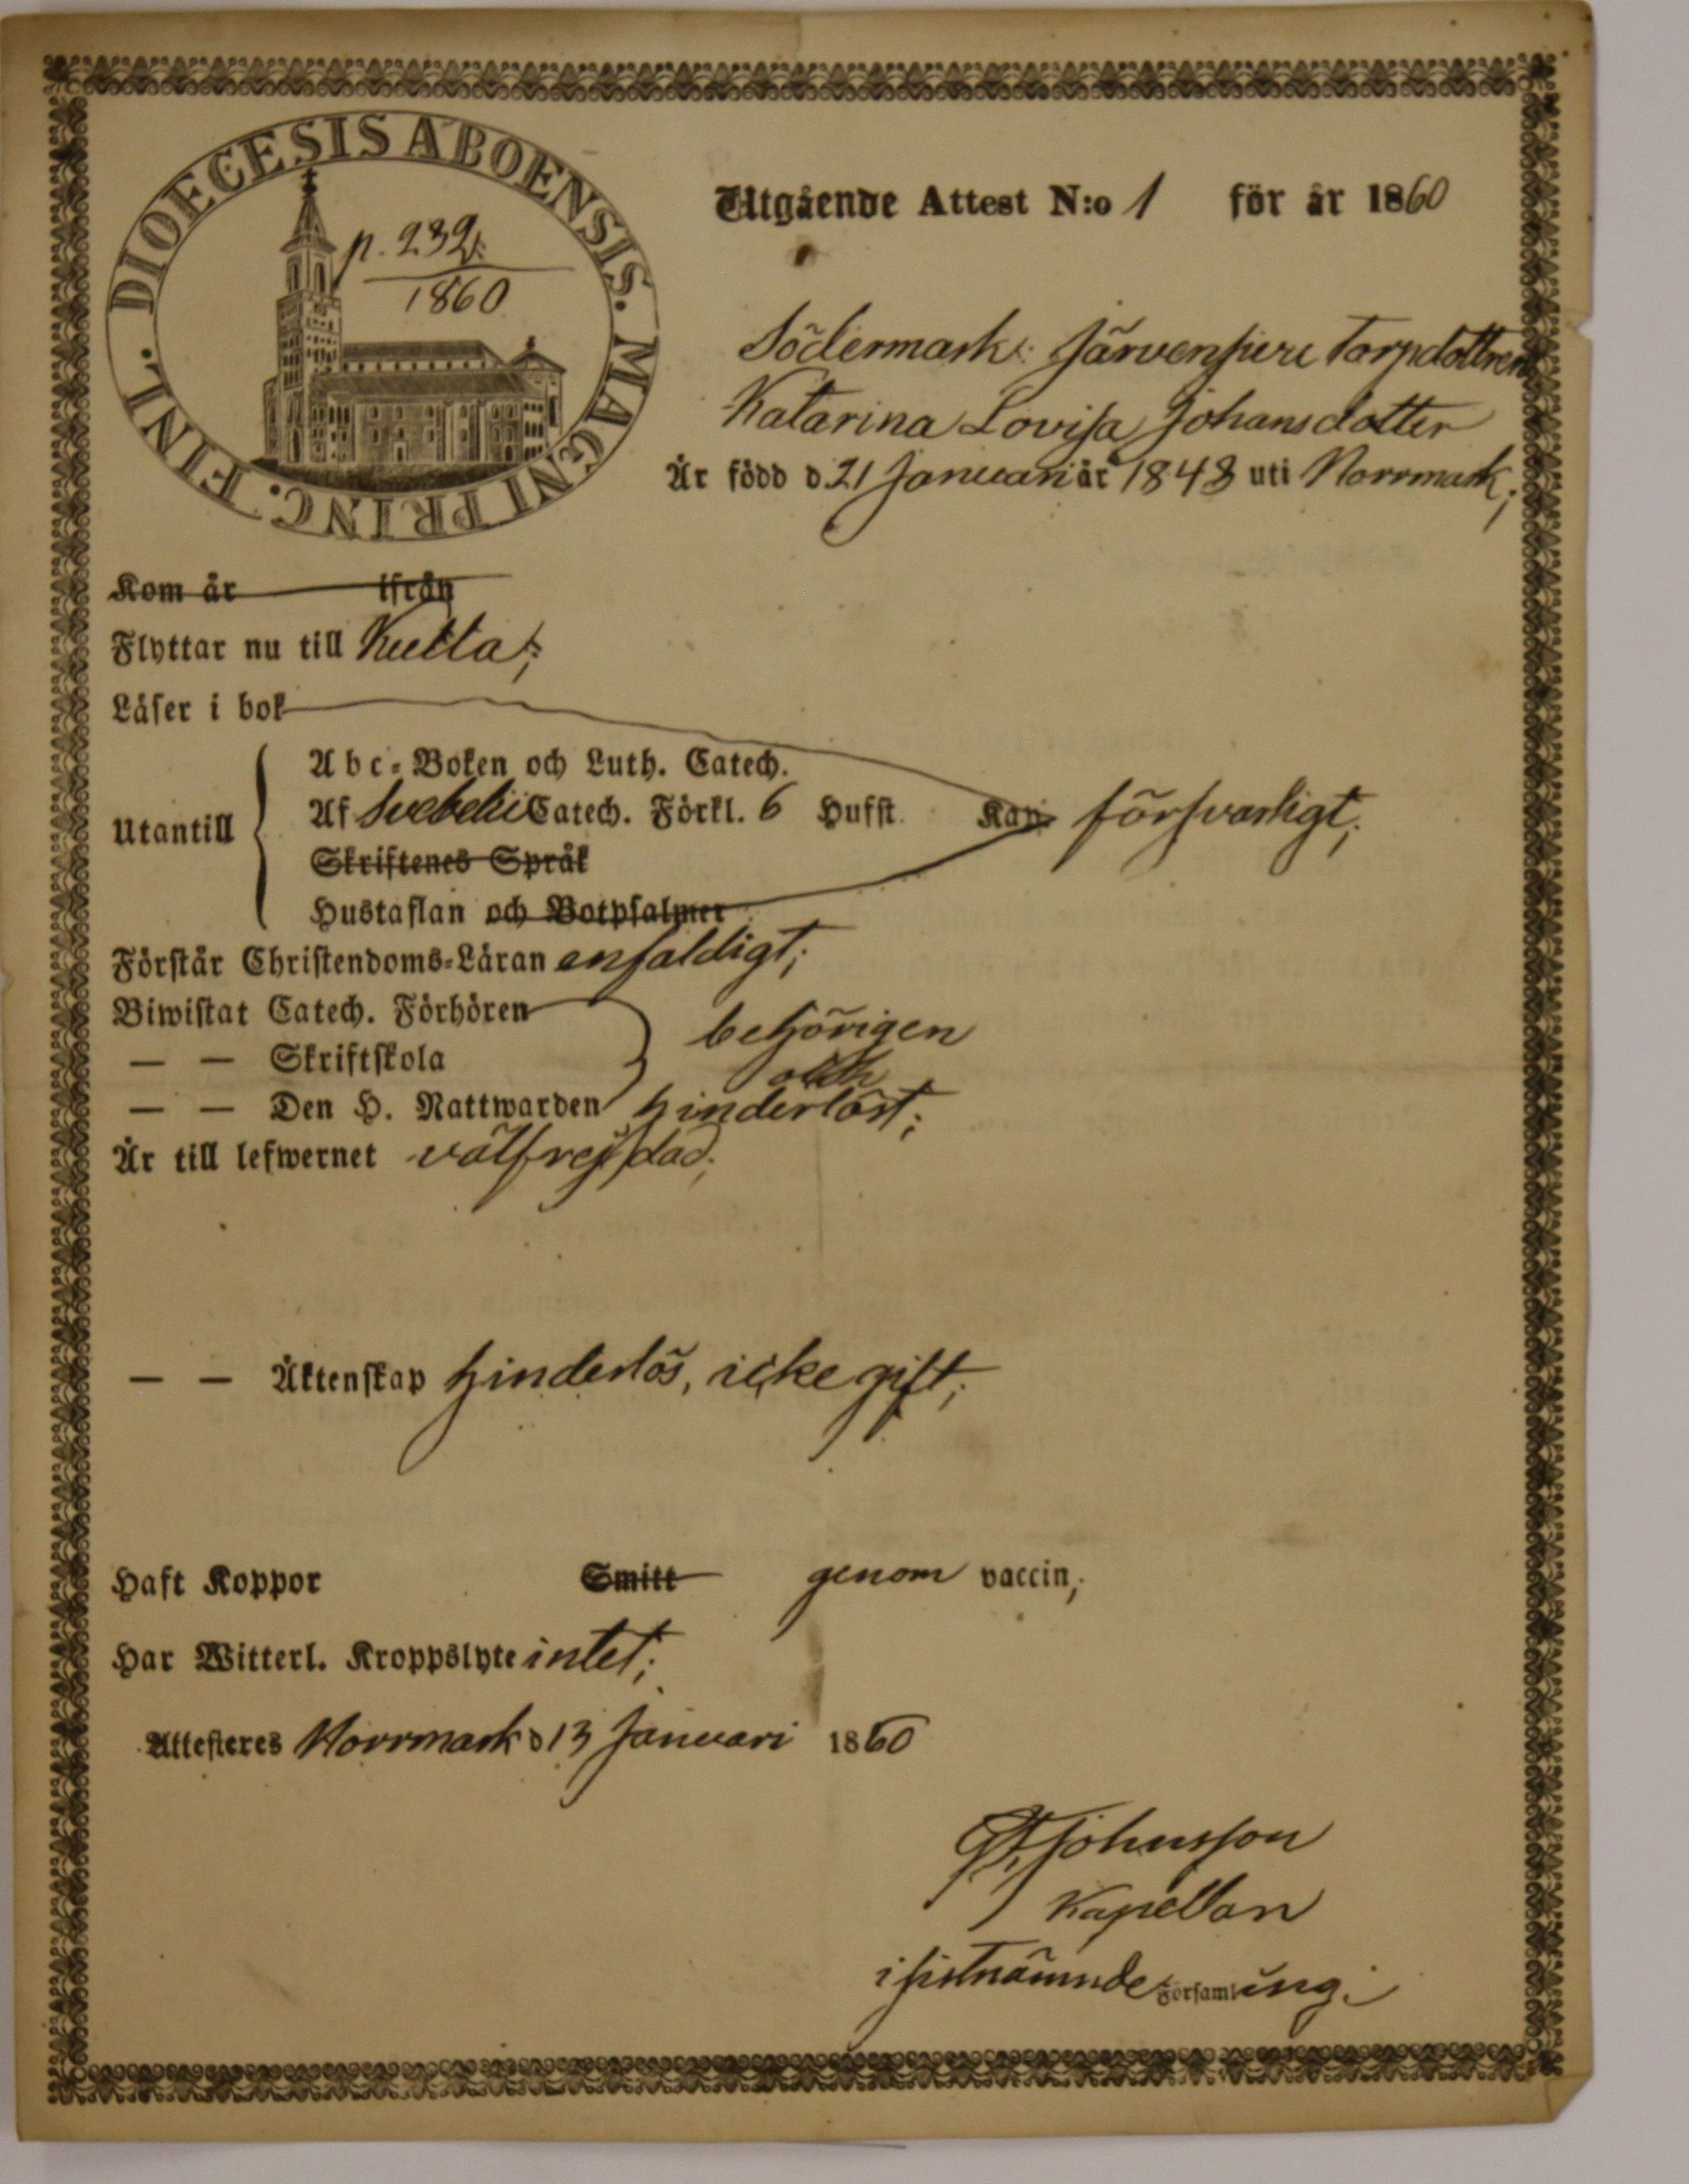 DIOECESIS ABOENSIS. MAGNI PRINC. FINL.
p. 232.
1860
Utgående Attest N:o 1 för år 1860
Södermark: Järvenpere Torpdottren
Katarina Lovisa Johansdotter
Är född d. 21 Januari år 1843 uti Norrmark;
Kom år ifrån
Flyttar nu till Kulla;
Läser i bok
Abc-Boken och Luth. Catech.
Utantill
Af Svebelii Catech. Förkl. 6 Hufst. Kan försvarligt;
Skriftenes Språk
Hustaflan och Botpsalmer
Förstår Christendoms-Läran enfaldigt;
Biwistat Catech. Förhören
— — Skriftskola
behörigen
och
— — Den H. Nattwarden hinderlöst;
Är till lefwernet välfrejdad;
— — Äktenskap hinderlös, icke gift;
Haft Koppor Smitt genom vaccin;
Har Witterl. Kroppslyte intet;
Attesteres Norrmark d 13 Januari 1860
Johnsson
Kapellan
i sistnämnde Församling.